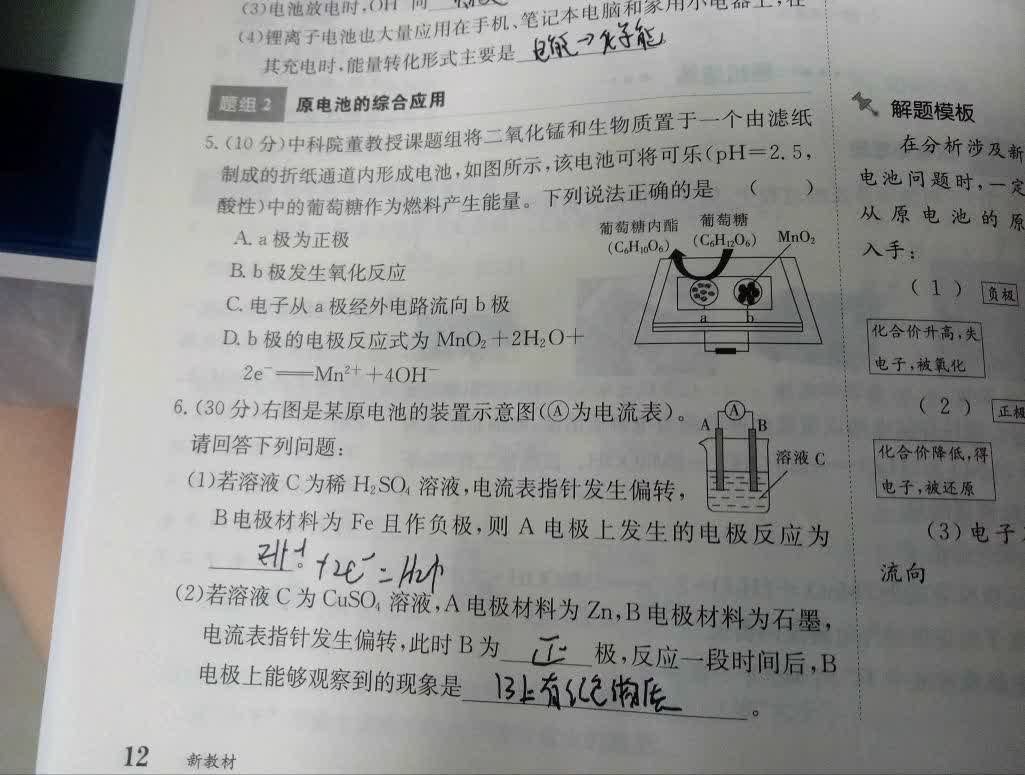 (3)电池放电时,OH⁻向
(4)锂离子电池也大量应用在手机、笔记本电脑和家用小电器上,在
其充电时,能量转化形式主要是 电能→化学能
题组2 原电池的综合应用
5.(10分)中科院董教授课题组将二氧化锰和生物质置于一个由滤纸
制成的折纸通道内形成电池,如图所示,该电池可将可乐(pH=2.5,
酸性)中的葡萄糖作为燃料产生能量。下列说法正确的是 ( )
A. a极为正极
B. b极发生氧化反应
C. 电子从a极经外电路流向b极
D. b极的电极反应式为MnO₂+2H₂O+
2e⁻═Mn²⁺+4OH⁻
葡萄糖内酯 葡萄糖
(C₆H₁₀O₆) (C₆H₁₂O₆) MnO₂
a b
6.(30分)右图是某原电池的装置示意图(Ⓐ为电流表)。
请回答下列问题:
(1)若溶液C为稀H₂SO₄溶液,电流表指针发生偏转,
B电极材料为Fe且作负极,则A电极上发生的电极反应为
2H⁺+2e⁻=H₂↑
A A B
溶液C
(2)若溶液C为CuSO₄溶液,A电极材料为Zn,B电极材料为石墨,
电流表指针发生偏转,此时B为 正 极,反应一段时间后,B
电极上能够观察到的现象是 B上有红色物质 。
12 新教材
解题模板
在分析涉及新
电池问题时,一定
从原电池的原
入手:
(1) 负极
化合价升高,失
电子,被氧化
(2) 正极
化合价降低,得
电子,被还原
(3)电子
流向